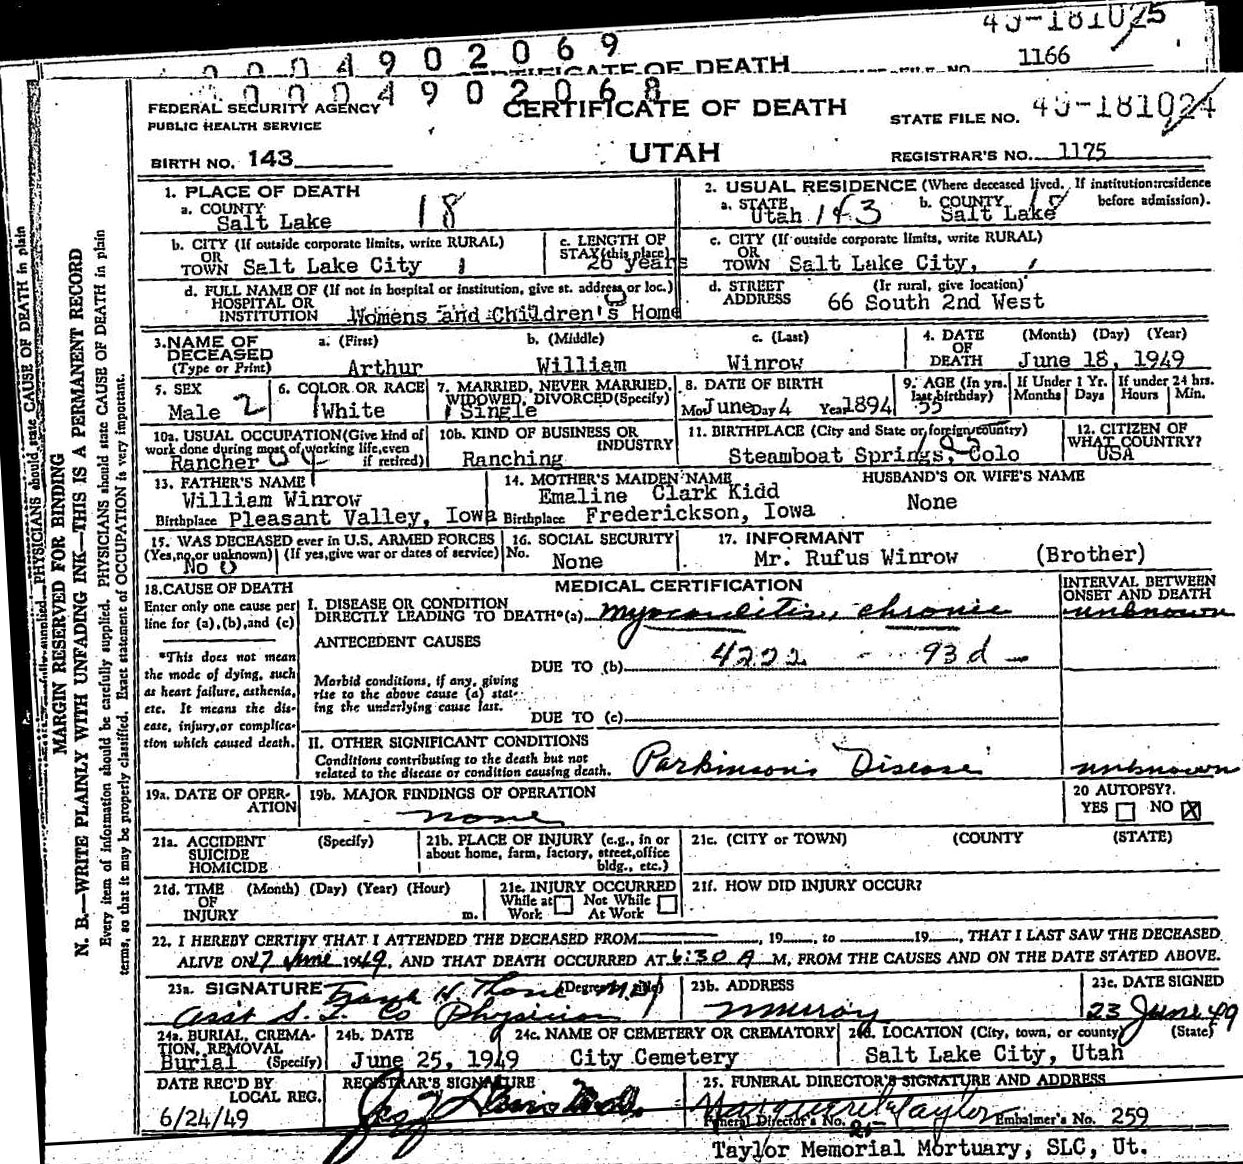 49-181025
0004902069
CERTIFICATE OF DEATH
FILE NO. 1166
0004902068
FEDERAL SECURITY AGENCY
PUBLIC HEALTH SERVICE
CERTIFICATE OF DEATH
STATE FILE NO. 49-181024
BIRTH NO. 143
UTAH
REGISTRAR'S NO. 1175
MARGIN RESERVED FOR BINDING
N. B.—WRITE PLAINLY WITH UNFADING INK—THIS IS A PERMANENT RECORD
Every item of information should be carefully supplied. PHYSICIANS should state CAUSE OF DEATH in plain
terms, so that it may be properly classified. Exact statement of OCCUPATION is very important.
1. PLACE OF DEATH
a. COUNTY
Salt Lake 18
2. USUAL RESIDENCE (Where deceased lived. If institution: residence
before admission).
a. STATE Utah 143 b. COUNTY Salt Lake 18
b. CITY (If outside corporate limits, write RURAL)
OR
TOWN Salt Lake City 1
c. LENGTH OF
STAY (this place)
26 years
c. CITY (If outside corporate limits, write RURAL)
OR
TOWN Salt Lake City,
d. FULL NAME OF (If not in hospital or institution, give st. address or loc.)
HOSPITAL OR
INSTITUTION Womens and Children's Home
d. STREET (If rural, give location)
ADDRESS 66 South 2nd West
3. NAME OF
DECEASED
(Type or Print)
a. (First) b. (Middle) c. (Last)
Arthur William Winrow
4. DATE (Month) (Day) (Year)
OF
DEATH June 18, 1949
5. SEX
Male 2
6. COLOR OR RACE
1 White
7. MARRIED, NEVER MARRIED,
WIDOWED, DIVORCED (Specify)
1 Single
8. DATE OF BIRTH
Mo. June Day 4 Year 1894
9. AGE (In yrs.
last birthday)
55
If Under 1 Yr.
Months Days
If under 24 hrs.
Hours Min.
10a. USUAL OCCUPATION (Give kind of
work done during most of working life, even
if retired)
Rancher
10b. KIND OF BUSINESS OR
INDUSTRY
Ranching
11. BIRTHPLACE (City and State or foreign country)
Steamboat Springs, Colo
12. CITIZEN OF
WHAT COUNTRY?
USA
13. FATHER'S NAME
William Winrow
Birthplace Pleasant Valley, Iowa
14. MOTHER'S MAIDEN NAME
Emaline Clark Kidd
Birthplace Frederickson, Iowa
HUSBAND'S OR WIFE'S NAME
None
15. WAS DECEASED ever in U.S. ARMED FORCES
(Yes, no, or unknown) (If yes, give war or dates of service)
No 0
16. SOCIAL SECURITY
No. None
17. INFORMANT
Mr. Rufus Winrow (Brother)
18. CAUSE OF DEATH
Enter only one cause per
line for (a), (b), and (c)
*This does not mean
the mode of dying, such
as heart failure, asthenia,
etc. It means the dis-
ease, injury, or complica-
tion which caused death.
MEDICAL CERTIFICATION
INTERVAL BETWEEN
ONSET AND DEATH
I. DISEASE OR CONDITION
DIRECTLY LEADING TO DEATH*(a) myocarditis, chronic unknown
ANTECEDENT CAUSES
4222 93d
DUE TO (b)
Morbid conditions, if any, giving
rise to the above cause (a) stat-
ing the underlying cause last.
DUE TO (c)
II. OTHER SIGNIFICANT CONDITIONS
Conditions contributing to the death but not
related to the disease or condition causing death.
Parkinson's Disease unknown
19a. DATE OF OPER-
ATION
19b. MAJOR FINDINGS OF OPERATION
none
20 AUTOPSY?
YES NO X
21a. ACCIDENT (Specify)
SUICIDE
HOMICIDE
21b. PLACE OF INJURY (e.g., in or
about home, farm, factory, street, office
bldg., etc.)
21c. (CITY or TOWN) (COUNTY (STATE)
21d. TIME (Month) (Day) (Year) (Hour)
OF
INJURY m.
21e. INJURY OCCURRED
While at Not While
Work At Work
21f. HOW DID INJURY OCCUR?
22. I HEREBY CERTIFY THAT I ATTENDED THE DECEASED FROM , 19 , to 19 , THAT I LAST SAW THE DECEASED
ALIVE ON 17 June 1949, AND THAT DEATH OCCURRED AT 6:30 A M, FROM THE CAUSES AND ON THE DATE STATED ABOVE.
23a. SIGNATURE (Degree or title)
Frank H. M.D.
Ass't S. L. Co Physician
23b. ADDRESS
Murray
23c. DATE SIGNED
23 June 49
24a. BURIAL, CREMA-
TION, REMOVAL
Burial (Specify)
24b. DATE
June 25, 1949
24c. NAME OF CEMETERY OR CREMATORY
City Cemetery
24d. LOCATION (City, town, or county) (State)
Salt Lake City, Utah
DATE REC'D BY
LOCAL REG.
6/24/49
REGISTRAR'S SIGNATURE
25. FUNERAL DIRECTOR'S SIGNATURE AND ADDRESS
Taylor
Funeral Director's No. Embalmer's No. 259
Taylor Memorial Mortuary, SLC, Ut.